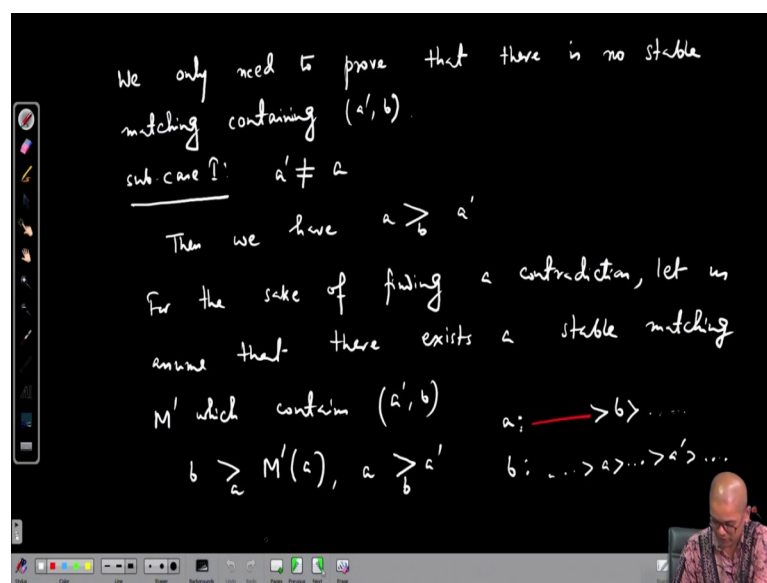 We only need to prove that there is no stable
matching containing (a', b).
sub-case I: a' ≠ a
Then we have a >_b a'
For the sake of finding a contradiction, let us
assume that there exists a stable matching
M' which contains (a', b)
a: > b > .....
b >_a M'(a), a >_b a'
b: ...> a >...> a' > ....